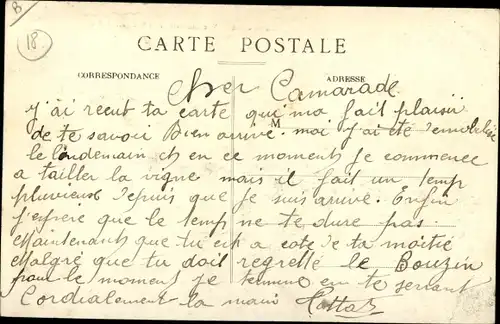 B
18
CARTE POSTALE
CORRESPONDANCE
ADRESSE
Cher Camarade
y'ai recut ta carte qui ma fait plaisir
M
de te savoir Bien arrivé. moi y'ai été demobilisé
le londemain et en ce moment je commence
a tailler la vigne mais il fait un temp
pluvieuse depuis que je suis arrivé. Enfin
j'espere que le temp ne te dure pas.
Maintenants que tu est a cote de ta moitié
Malgré que tu doit regretté le Bouzin
pour le moment je termine en te serrant
Cordialement la main